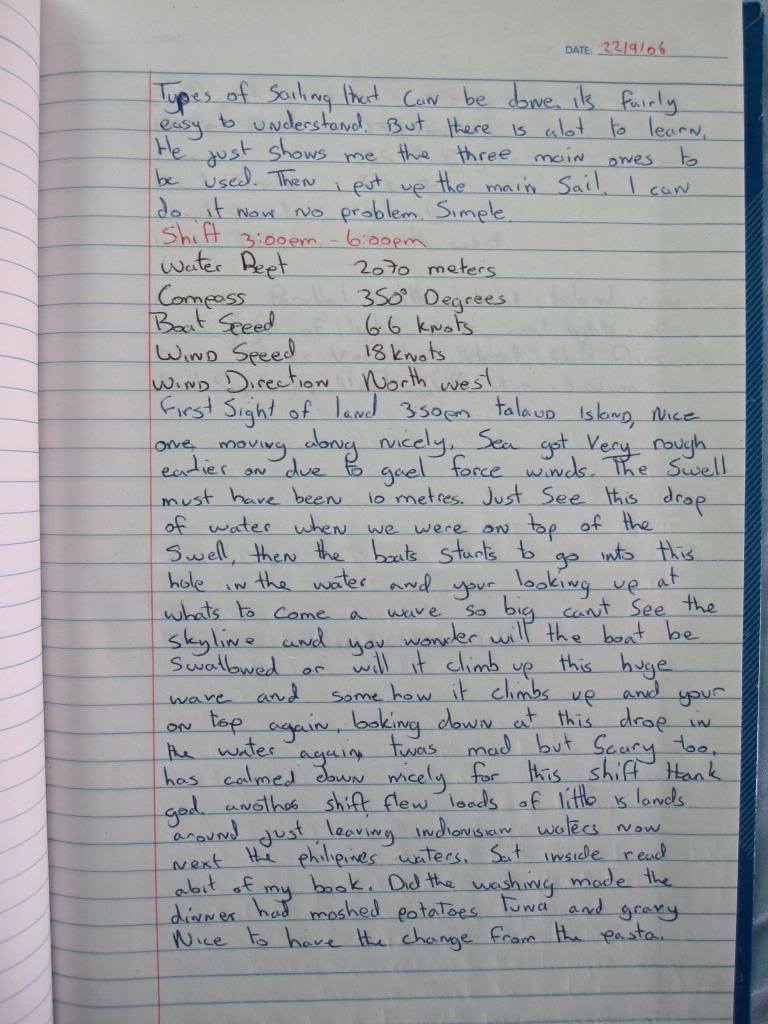 DATE: 22/9/06
Types of Sailing that can be done. its fairly
easy to understand. But there is alot to learn,
He just shows me the three main ones to
be used. Then i put up the main Sail. I can
do it now no problem. Simple.
Shift 3:00pm - 6:00pm
Water Dept 2070 meters
Compass 350° Degrees
Boat Speed 6.6 knots
Wind Speed 18 knots
Wind Direction North west
First Sight of land 3:50pm talaud Island, Nice
one, moving along nicely. Sea got Very rough
earlier on due to gael force winds. The Swell
must have been 10 metres. Just See this drop
of water when we were on top of the
Swell, then the boats starts to go into this
hole in the water and your looking up at
whats to come a wave so big cant See the
skyline and you wonder will the boat be
Swallowed or will it climb up this huge
wave and some how it climbs up and your
on top again, looking down at this drop in
the water again, twas mad but Scary too,
has calmed down nicely for this shift thank
god. another shift flew loads of little islands
around just leaving indionisian waters now
next the philipines waters. Sat inside read
abit of my book. Did the washing made the
dinner had mashed potatoes tuna and gravy
Nice to have the change from the pasta.